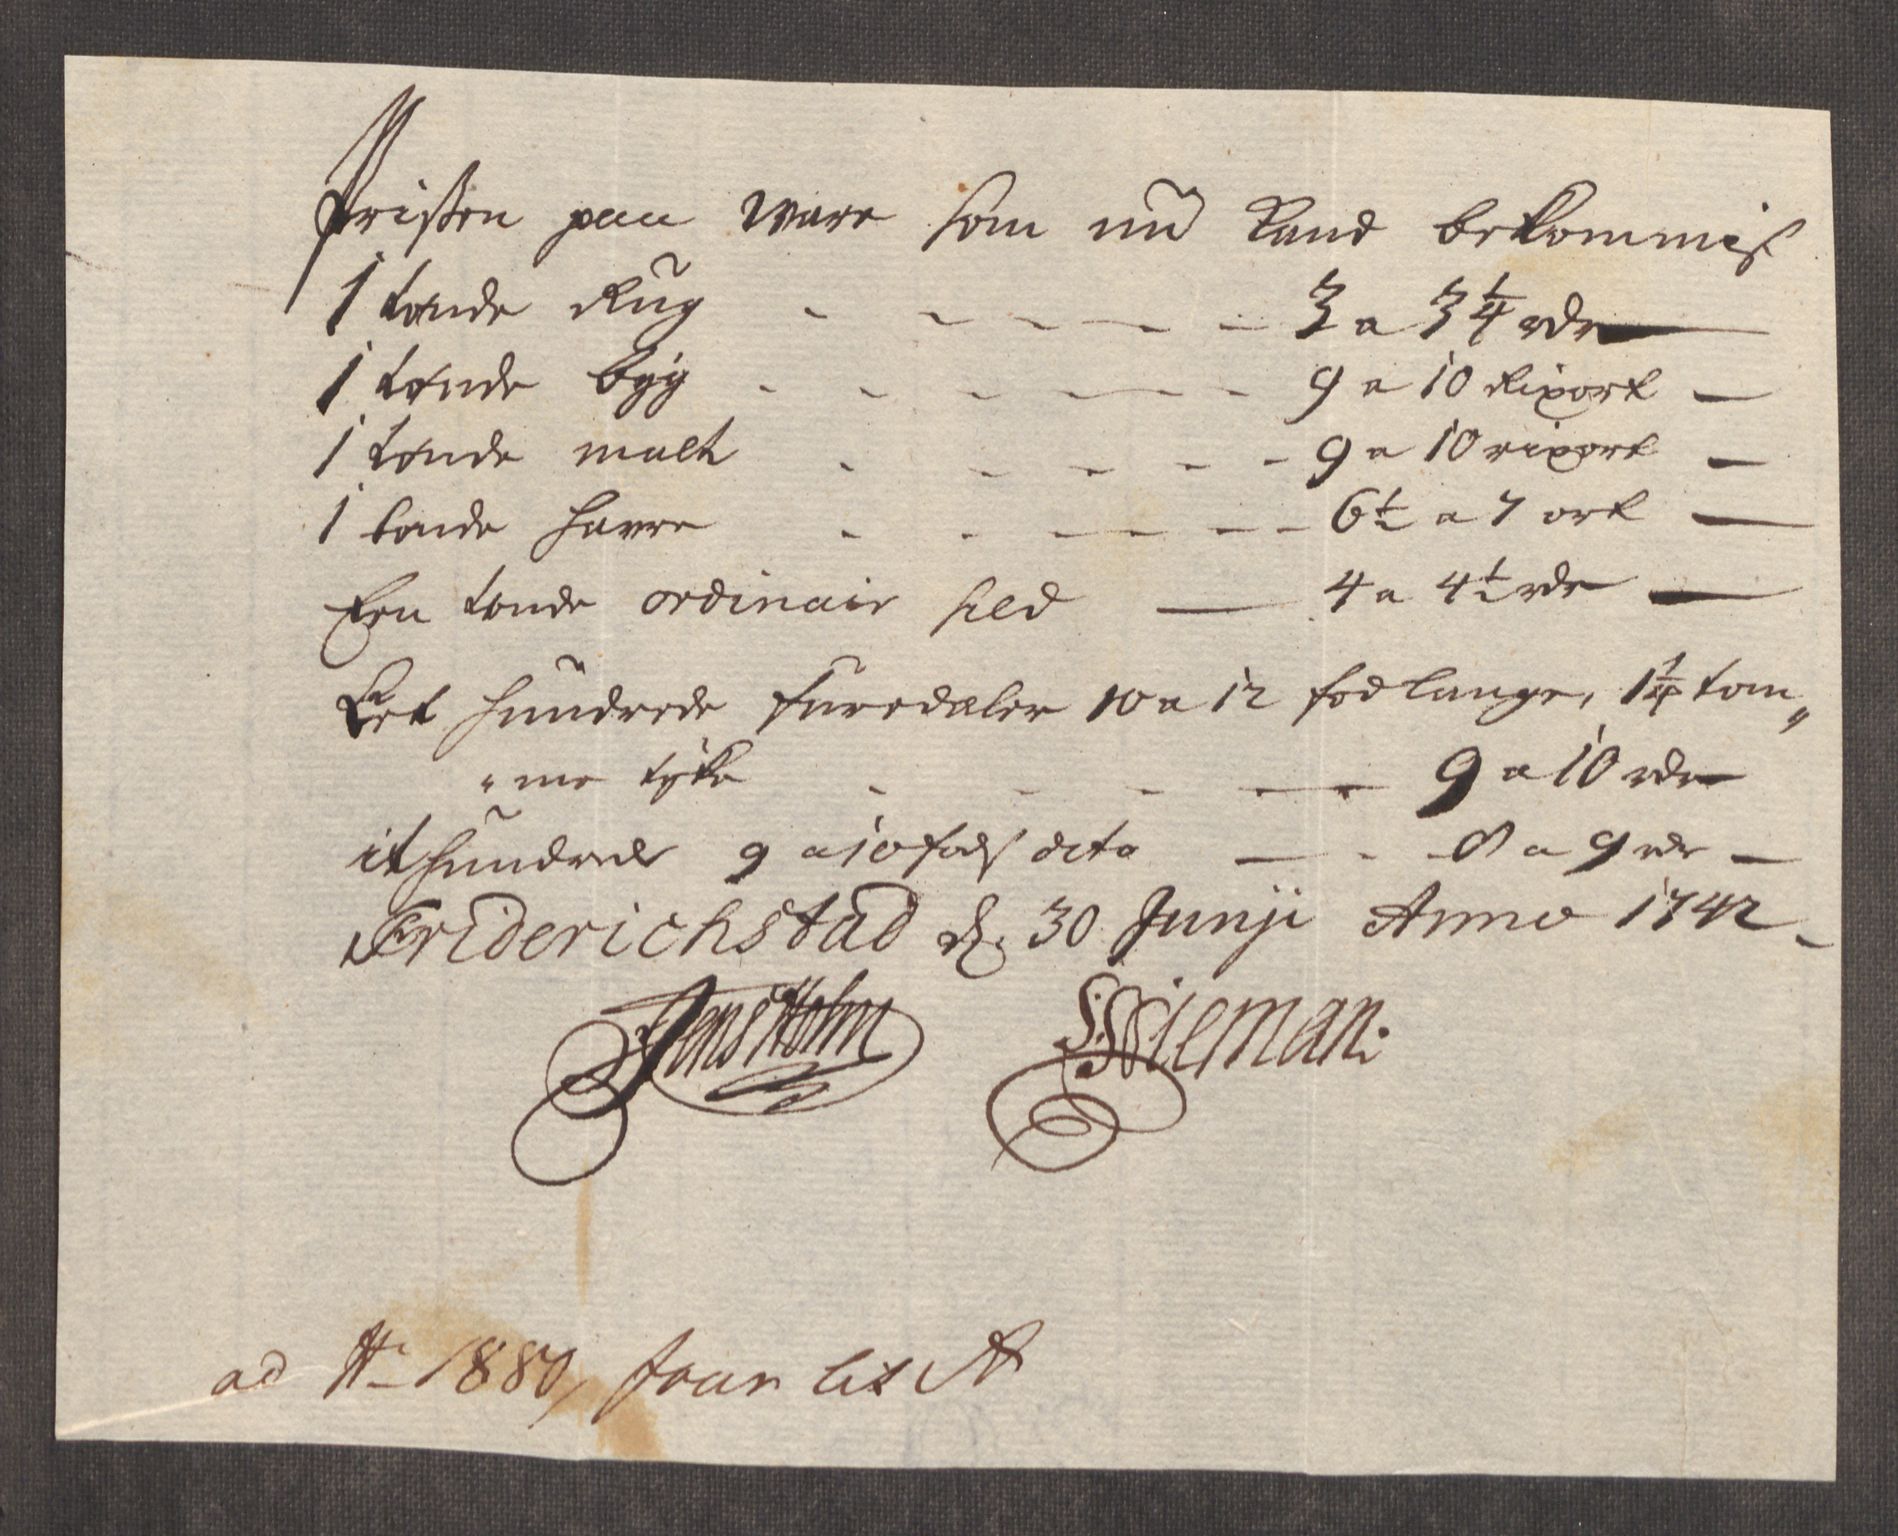 Prissen paa ware som nu kand bekommis
1 tønde Rug - - - - - 3 a 3 1/4 rdr
1 tønde byg - - - - - 9 a 10 Rixort -
1 tønde malt - - - - - 9 a 10 rixort -
1 tønde havre - - - - - 6 1/2 a 7 ort -
Een tønde ordinair sild - 4 a 4 1/2 rdr -
Eet hundrede furedæler 10 a 12 fod lange, 1 1/4 tom„
„me tyke - - - - - 9 a 10 rdr
it hundrede 9 a 10 fods dito - - - 8 a 9 rdr -
Friderichstad d. 30 Junji Anno 1742 -
Jens Holm S: Wieman:
ad No 1880, faar lit A